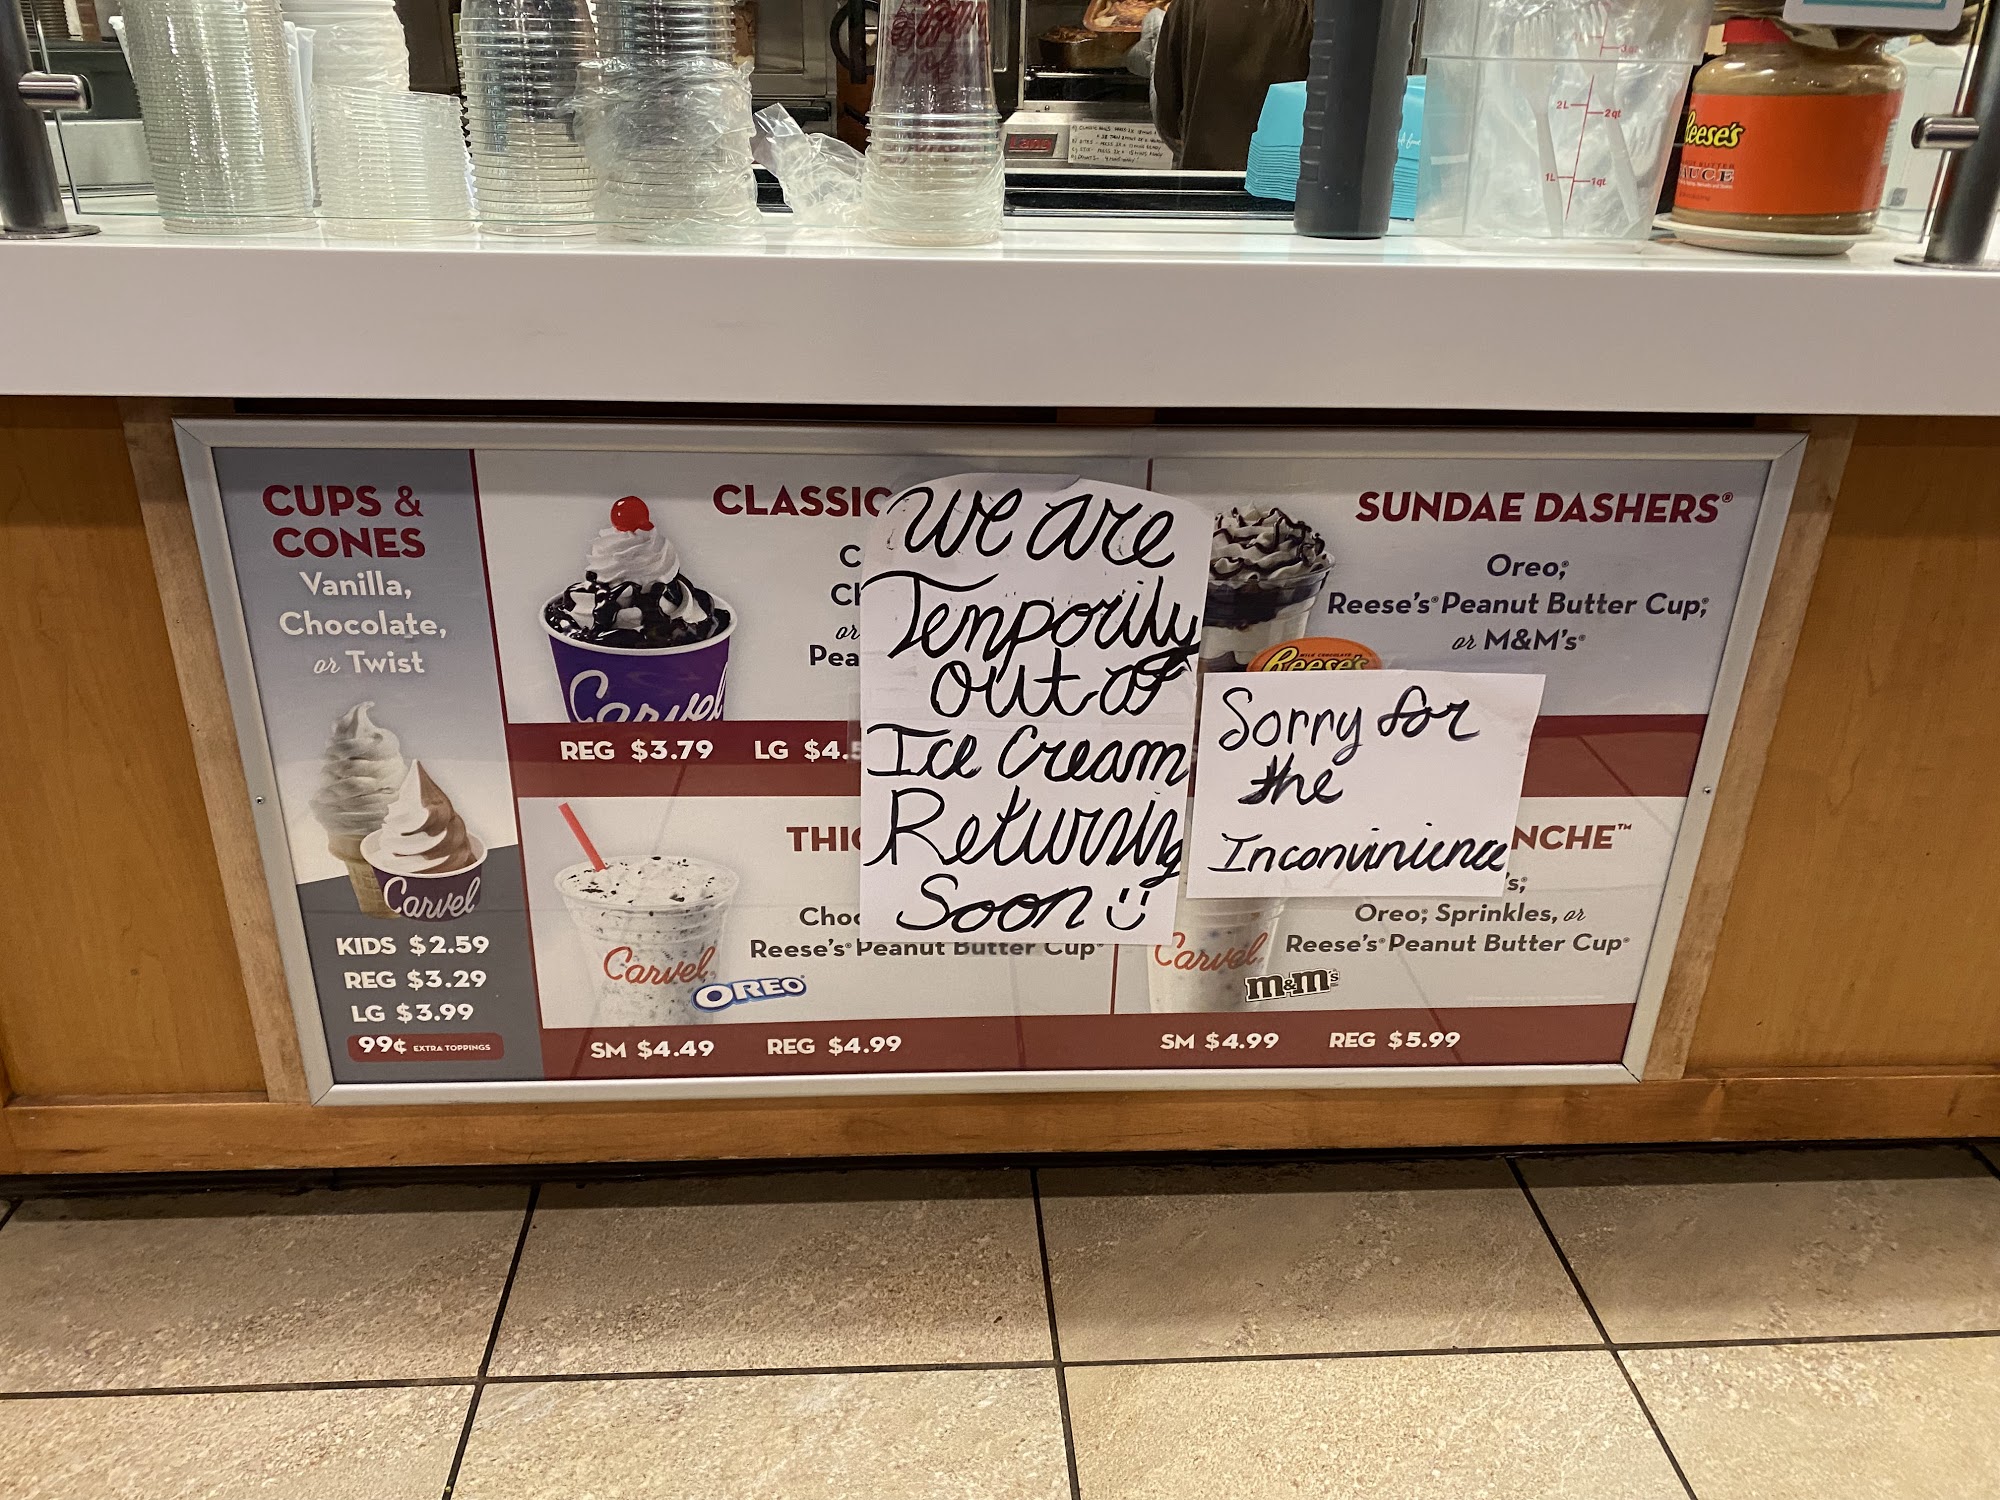 2L
2qt
1L
1qt
Reese's
SAUCE
Lang
CUPS &
CONES
Vanilla,
Chocolate,
or Twist
Carvel
KIDS $2.59
REG $3.29
LG $3.99
99¢ EXTRA TOPPINGS
CLASSIC
or
Carvel
REG $3.79 LG $4.5
Carvel
OREO
Reese's® Peanut Butter Cup®
SM $4.49 REG $4.99
We are
Temporily
out of
Ice Cream
Returning
Soon
SUNDAE DASHERS®
Oreo®,
Reese's® Peanut Butter Cup®,
or M&M's®
Reese's
Sorry for
the
Inconvinience
NCHE™
's®,
Oreo®, Sprinkles, or
Reese's® Peanut Butter Cup®
Carvel
m&m's
SM $4.99 REG $5.99